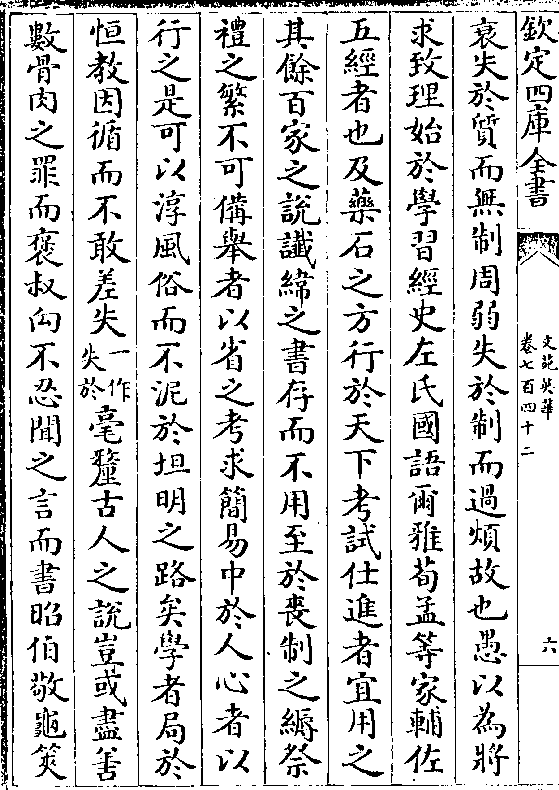 欽定四庫全書
文苑英華
卷七百四十二
六
衰失於質而無制周弱失於制而過煩故也愚以為將
求致理始於學習經史左氏國語爾雅荀孟等家輔佐
五經者也及藥石之方行於天下考試仕進者宜用之
其餘百家之說讖緯之書存而不用至於喪制之縟祭
禮之繁不可備舉者以省之考求簡易中於人心者以
行之是可以淳風俗而不泥於坦明之路矣學者局於
恒教因循而不敢差失一作失於毫釐古人之說豈或盡善
數骨肉之罪而褒叔向不忍聞之言而書昭伯敬龜筴